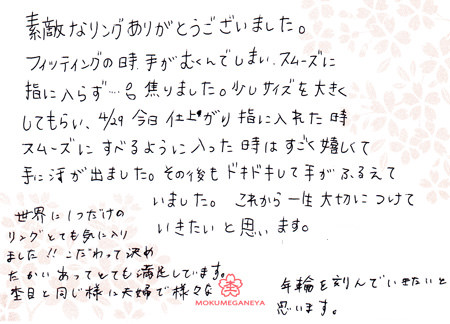 素敵なリングありがとうございました。
フィッティングの時、手がむくんでしまい、スムーズに
指に入らず…焦りました。少しサイズを大きく
してもらい、4/29 今日仕上がり指に入れた時
スムーズにすべるように入った時はすごく嬉しくて
手に汗が出ました。その後もドキドキして手がふるえて
いました。これから一生大切につけて
いきたいと思います。
世界に1つだけの
リングとても気に入り
ました!!こだわって決め
たかいあってとても満足しています。
杢目と同じ様に夫婦で様々な
年輪を刻んでいきたいと
思います。
MOKUMEGANEYA